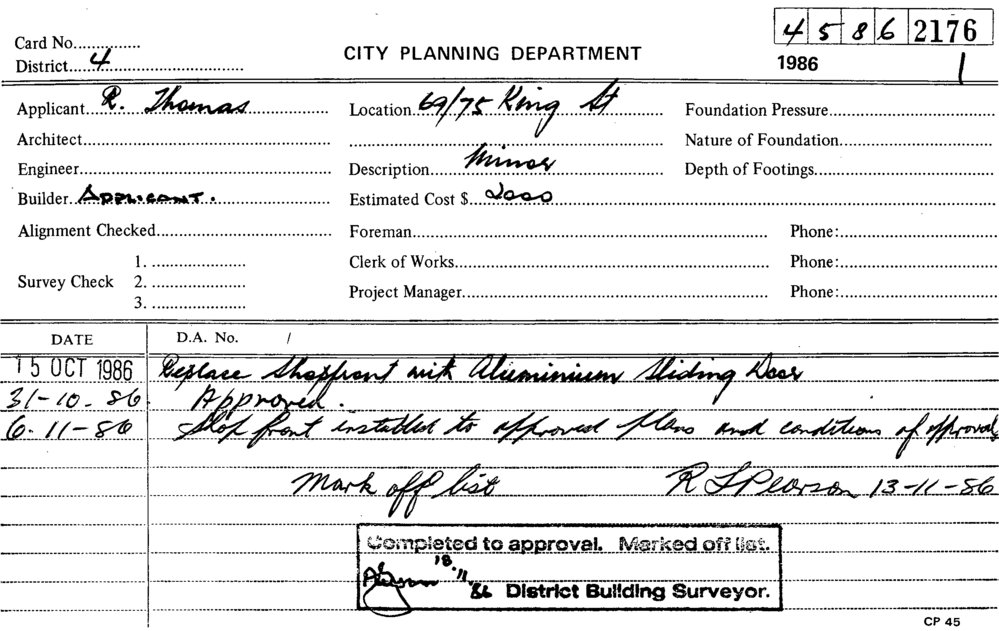 4 5 8 6 2176
Card No...............
District....4..............................
CITY PLANNING DEPARTMENT
1986
1
Applicant R. Thomas
Location 69/75 King St
Foundation Pressure
Architect
Nature of Foundation
Engineer
Description Minor
Depth of Footings
Builder APPLICANT.
Estimated Cost $ 2000
Alignment Checked
Foreman
Phone:
1.
Clerk of Works
Phone:
Survey Check 2.
Project Manager
Phone:
3.
DATE D.A. No. /
15 OCT 1986 Replace Shopfront with Aluminium Sliding Door
31-10-86. Approved.
6-11-86 Shop front installed to approved plans and conditions of approval
Mark off list R L Pearson 13-11-86
Completed to approval. Marked off list.
18.11.86 District Building Surveyor.
CP 45